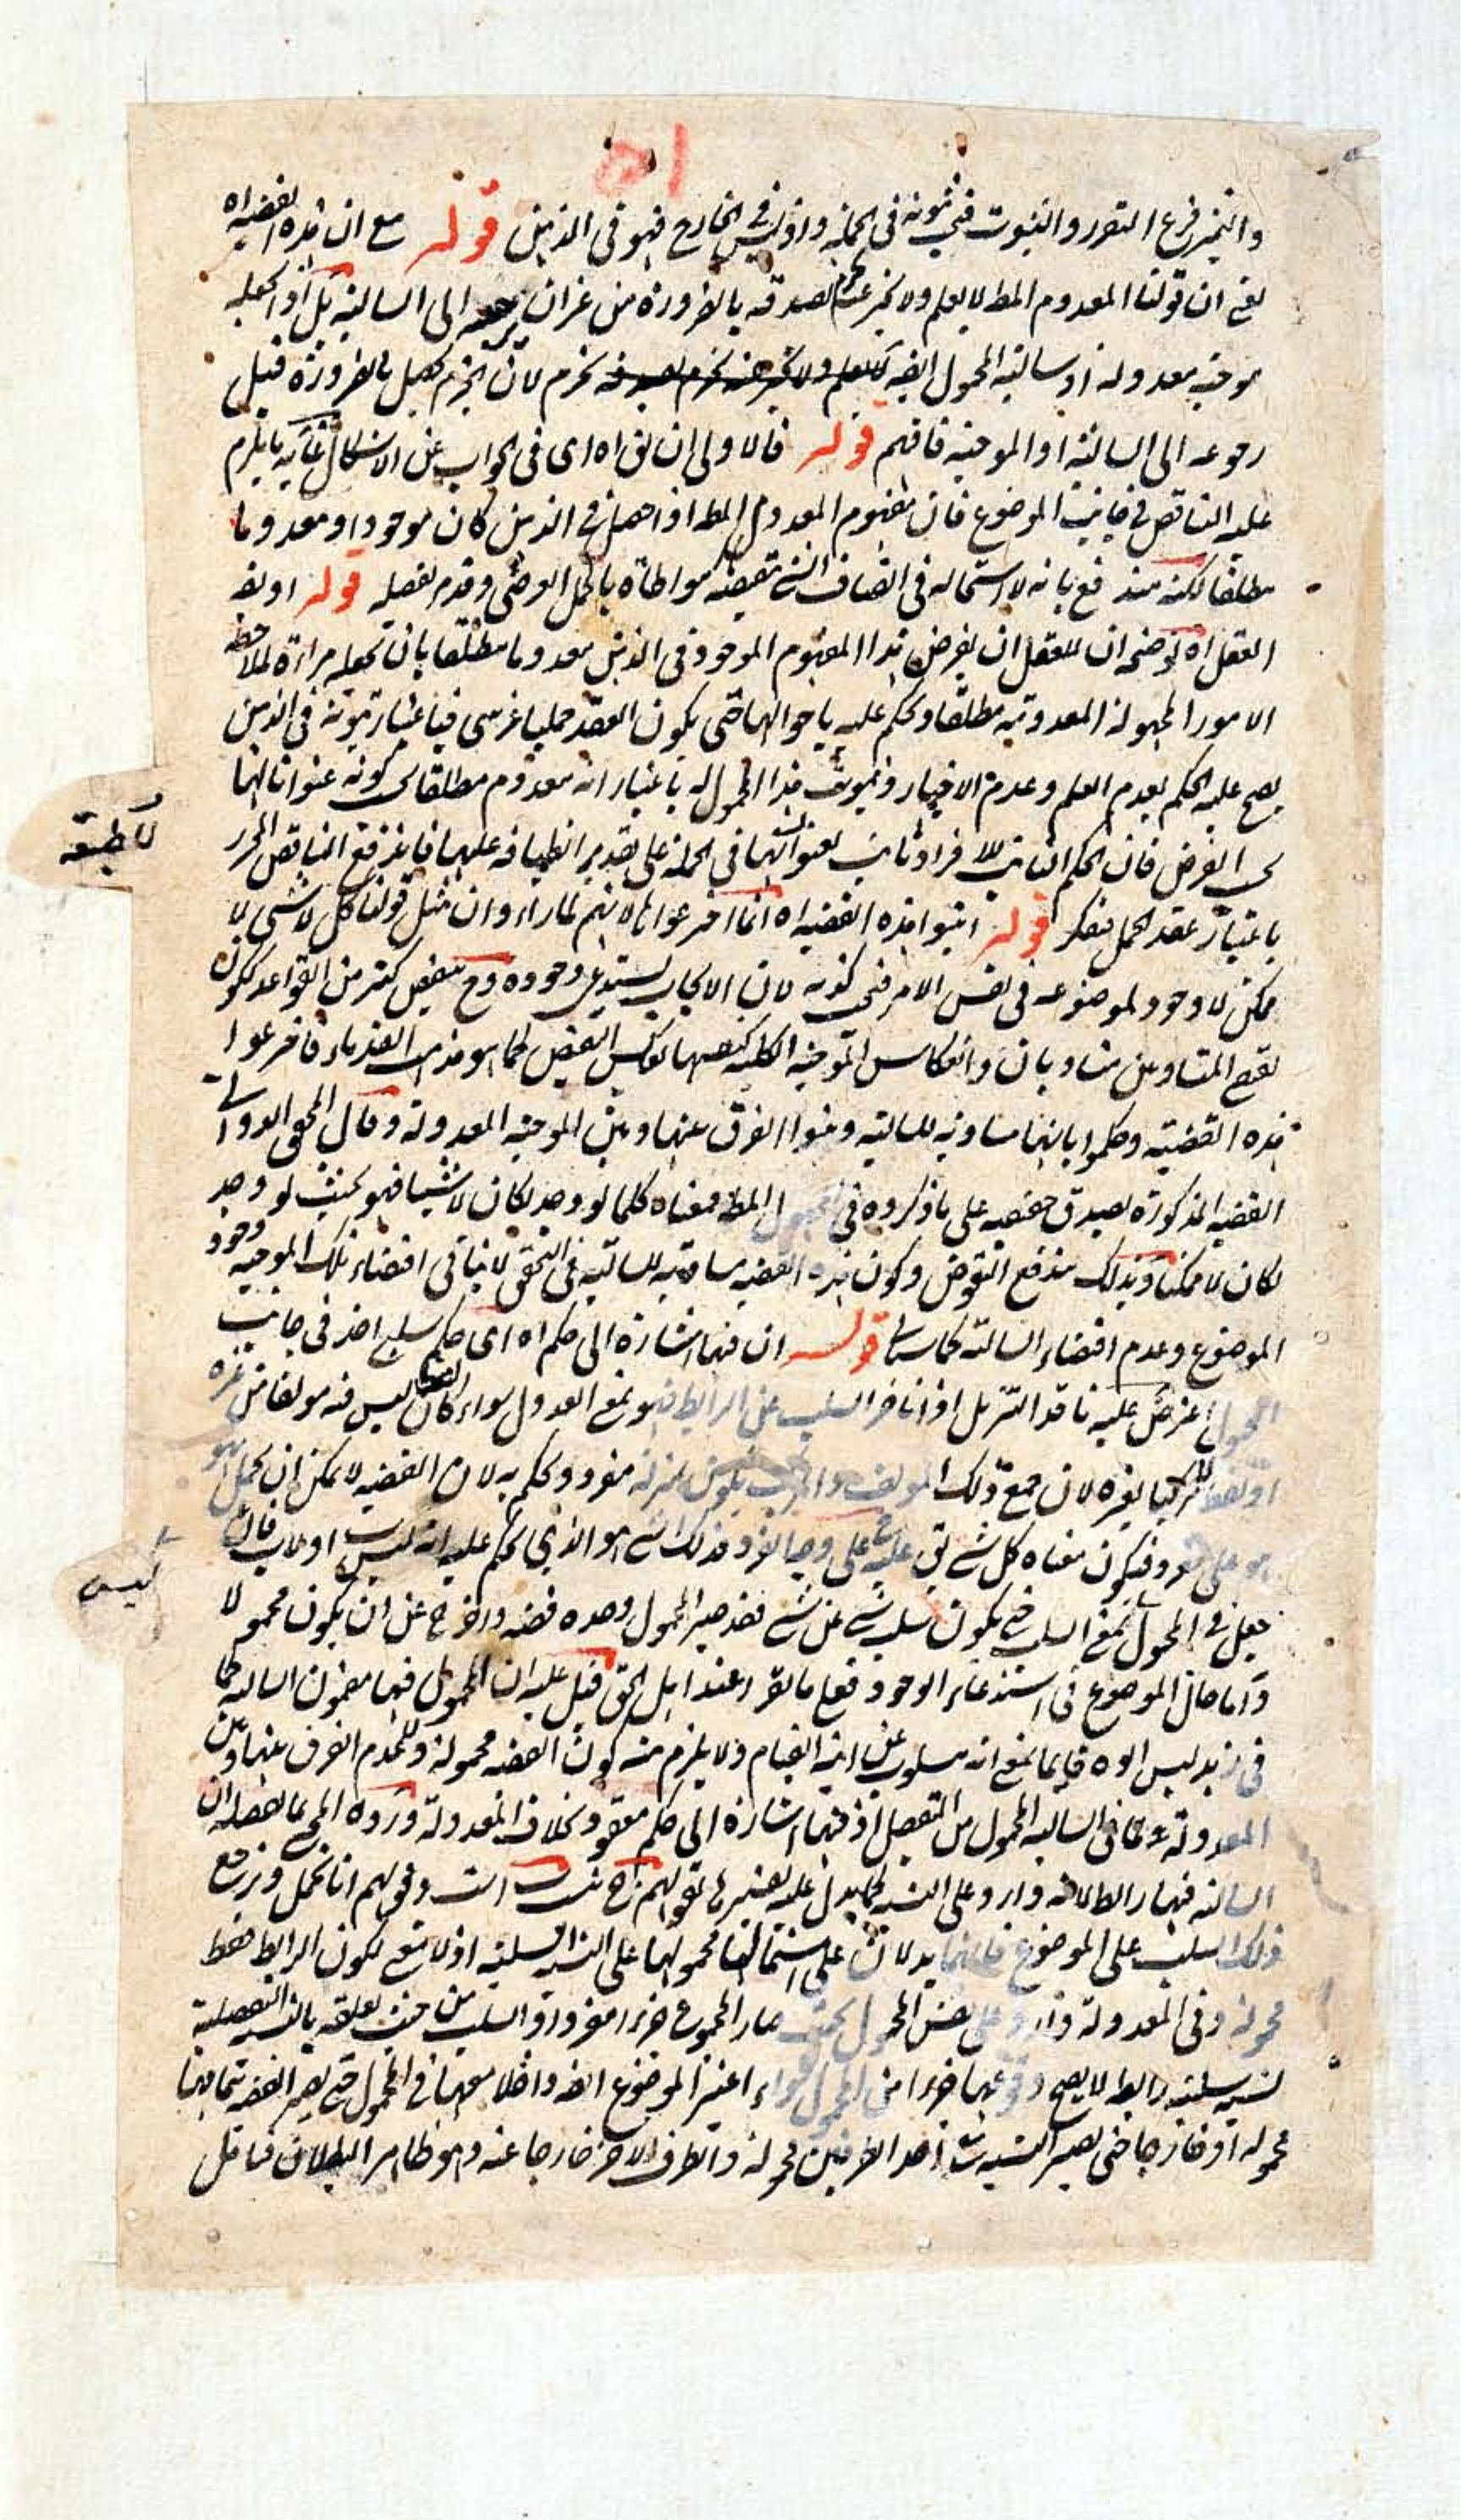 والتميز فرع التصور والثبوت فهي ثبوته في الجملة واذ ليس في الخارج فهو في الذهن قوله مع ان هذه القضية اه
يعني ان قولنا المعدوم المط لا يعلم ولا يخبر عنه نجزم بصدقه بالضرورة من غير ان نرجعه الى السالبة بل لو نجعله
موجبة معدولة او سالبة المحمول ايضا نجزم لان الجزم يحصل بالضرورة قبل
رجوعه الى السالبة او الموجبة فافهم قوله فالاولى ان يق اه اى في الجواب عن الاشكال غايته ما يلزم
عليه التناقض في جانب الموضوع فان مفهوم المعدوم المط اذا حصل في الذهن كان موجودا ومعدوما
مطلقا لكنه مندفع بانه لا استحالة في اتصاف الشئ بنقيضه مواطاة بالحمل العرضي وقد مر تفصيله قوله او يفر
العقل اه توضيحه ان للعقل ان يفرض هذا المفهوم الموجود في الذهن معدوما مطلقا بان يجعله مرآة لملاحظة
الامور المجهولة المعدومة مطلقا ويحكم عليه باحوالها حتى يكون العقد حمليا غير بتي فباعتبار ثبوته في الذهن
يصح عليه الحكم بعدم العلم وعدم الاخبار وثبوت هذا المحمول له باعتبار انه معدوم مطلقا اى كونه عنوانا لها
بحسب الفرض فان الحكم الثابت للافراد ثابت لعنوانها في الجملة على تقدير انطباقه عليها فاندفع التناقض المحرر
باعتبار عقد الحمل فتفكر قوله اثبتوا هذه القضية اه انما اخترعوا لانهم لما راوا ان مثل قولنا كل لا شئ لا
ممكن لا وجود لموضوعه في نفس الامر فهي كذب لان الايجاب يستدعى وجوده وح ينتقض كثير من القواعد ككون
نقيضي المتساويين متساويان وانعكاس الموجبة الكلية كنفسها بعكس النقيض كما هو مذهب القدماء فاخترعوا
هذه القضية وحكموا بانها مساوية للسالبة وبينوا الفرق بينها وبين الموجبة المعدولة وقال المحقق الدوانى
القضية المذكورة تصدق حقيقية على ما ذكروه في المجهول المط فمعناه كلما لو وجد لكان لا شيئا فهو بحيث لو وجد
لكان لا ممكنا وبذلك يندفع النقوض وكون هذه القضية مساوية للسالبة في التحقق لا ينافي اقتضاء تلك الموجبة وجود
الموضوع وعدم اقتضاء السالبة كما سياتى قوله ان فيها اشارة الى حكم اه اى حكم سلبى اخذ في جانب
المحمول اعترض عليه ناقد التنزيل اذا تاخر السلب عن الرابط فهو بمعنى العدول سواء كان لفظ ليس فيه مؤلفا من غيره
او لفظ مركبا بغيره لان جميع ذلك المؤلف والمركب يكون بمنزلة مفرد ويحكم به لان القضية لا يمكن ان يحمل بهو
هو على مفرد فيكون معناه كل شئ يق عليه على وجه المفرد فذلك الشئ هو الذي يحكم عليه انه ليس ب اولا ب فان
جعل في المحمول بمعنى السلب حتى يكون سلب شئ عن شئ فقد صير المحمول وحده قضية واخرج عن ان يكون محمولا
واما حال الموضوع في استدعاء الوجود فعلى ما تقرر عند اهل الحق قيل عليه ان المحمول فيها مضمون السالبة كما
في زيد ليس ابوه قايما بمعنى انه مسلوب عن ابيه القيام ولا يلزم منه كون القضية محمولة وللمخدم الفرق بينها وبين
المعدولة لما في السالبة المحمول من التفصيل اذ فيها اشارة الى حكم معقود بخلاف المعدولة ورده المحقق بما تفصيله ان
السالبة فيها رابط لانه وارد على النسبة كما يدل عليه تعبيرها بقولهم ج نيست ب است وقولهم انا نحمل ونرجع
ذلك السلب على الموضوع فانهما يدلان على اشتمال محمولها على النسبة السلبية اذ لا معنى لكون الرابط فقط
محمولة وفي المعدولة وارد على نفس المحمول بحيث صار المجموع جزءا مفردا والسلب من حيث تعلقه بالنسبة التفصيلية
نسبة سلبية رابط لا يصح وقوعها جزءا من المحمول سواء اعتبر الموضوع ايضا داخلا معها في المحمول حتى يصير القضية بتمامها
محمولة او خارجا حتى يصير النسبة مع احد الطرفين محمولة والطرف الاخر خارجا عنه وهو ظاهر البطلان فتامل
لا طبيعة
ليس